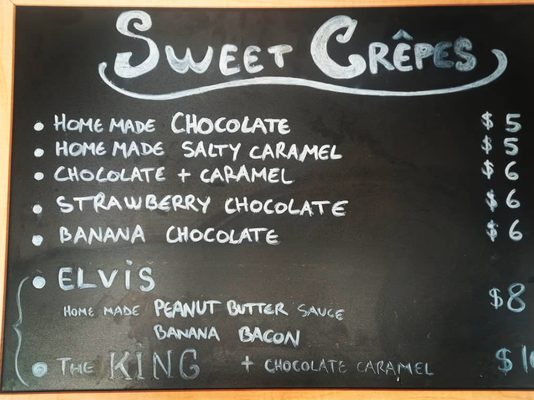 SWEET CRÊPES
• HOME MADE CHOCOLATE $5
• HOME MADE SALTY CARAMEL $5
• CHOCOLATE + CARAMEL $6
• STRAWBERRY CHOCOLATE $6
• BANANA CHOCOLATE $6
• ELVIS
HOME MADE PEANUT BUTTER SAUCE $8
BANANA BACON
• THE KING + CHOCOLATE CARAMEL